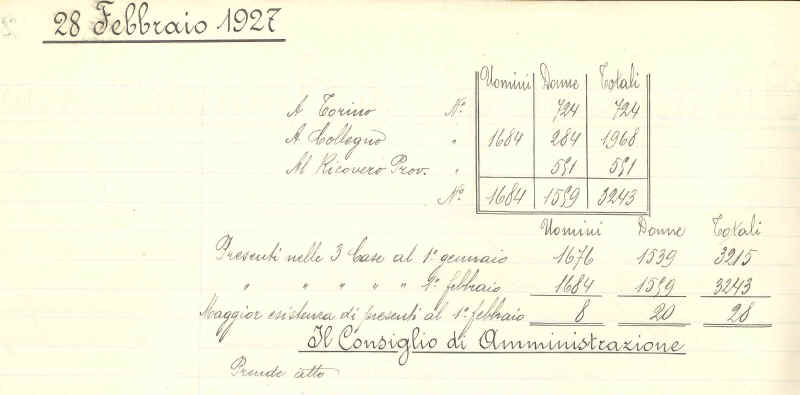 28 Febbraio 1927
Uomini Donne Totali
A Torino Nº 724 724
A Collegno " 1684 284 1968
Al Ricovero Prov. " 551 551
Nº 1684 1559 3243
Uomini Donne Totali
Presenti nelle 3 Case al 1º gennaio 1676 1539 3215
" " " " " 1º febbraio 1684 1559 3243
Maggior esistenza di presenti al 1º febbraio 8 20 28
Il Consiglio di Amministrazione
Prende atto